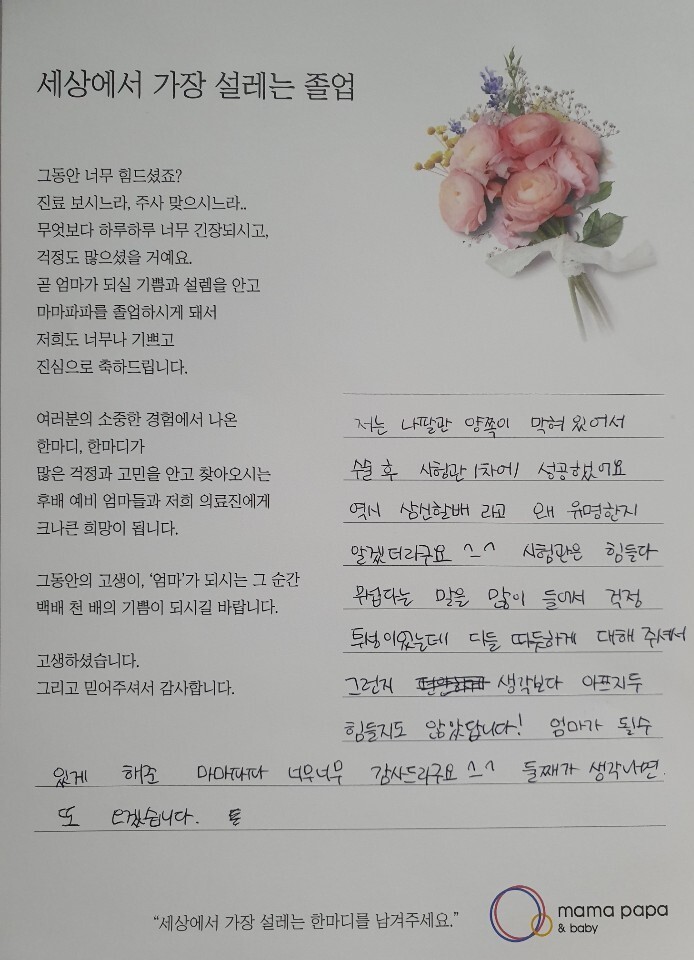 세상에서 가장 설레는 졸업
그동안 너무 힘드셨죠?
진료 보시느라, 주사 맞으시느라..
무엇보다 하루하루 너무 긴장되시고,
걱정도 많으셨을 거예요.
곧 엄마가 되실 기쁨과 설렘을 안고
마마파파를 졸업하시게 돼서
저희도 너무나 기쁘고
진심으로 축하드립니다.
여러분의 소중한 경험에서 나온
한마디, 한마디가
많은 걱정과 고민을 안고 찾아오시는
후배 예비 엄마들과 저희 의료진에게
크나큰 희망이 됩니다.
그동안의 고생이, '엄마'가 되시는 그 순간
백배 천 배의 기쁨이 되시길 바랍니다.
고생하셨습니다.
그리고 믿어주셔서 감사합니다.
저는 나팔관 양쪽이 막혀 있어서
수술 후 시험관 1차에 성공했어요
역시 삼신할배 라고 왜 유명한지
알겠더라구요 ^-^ 시험관은 힘들다
무섭다는 말을 많이 들어서 걱정
투성이있는데 다들 따듯하게 대해 주셔서
그런지 생각보다 아프지두
힘들지도 않았답니다! 엄마가 될수
있게 해준 마마파파 너무너무 감사드라구요 ^-^ 둘째가 생각나면
또 오겠습니다.
"세상에서 가장 설레는 한마디를 남겨주세요."
mama papa
& baby